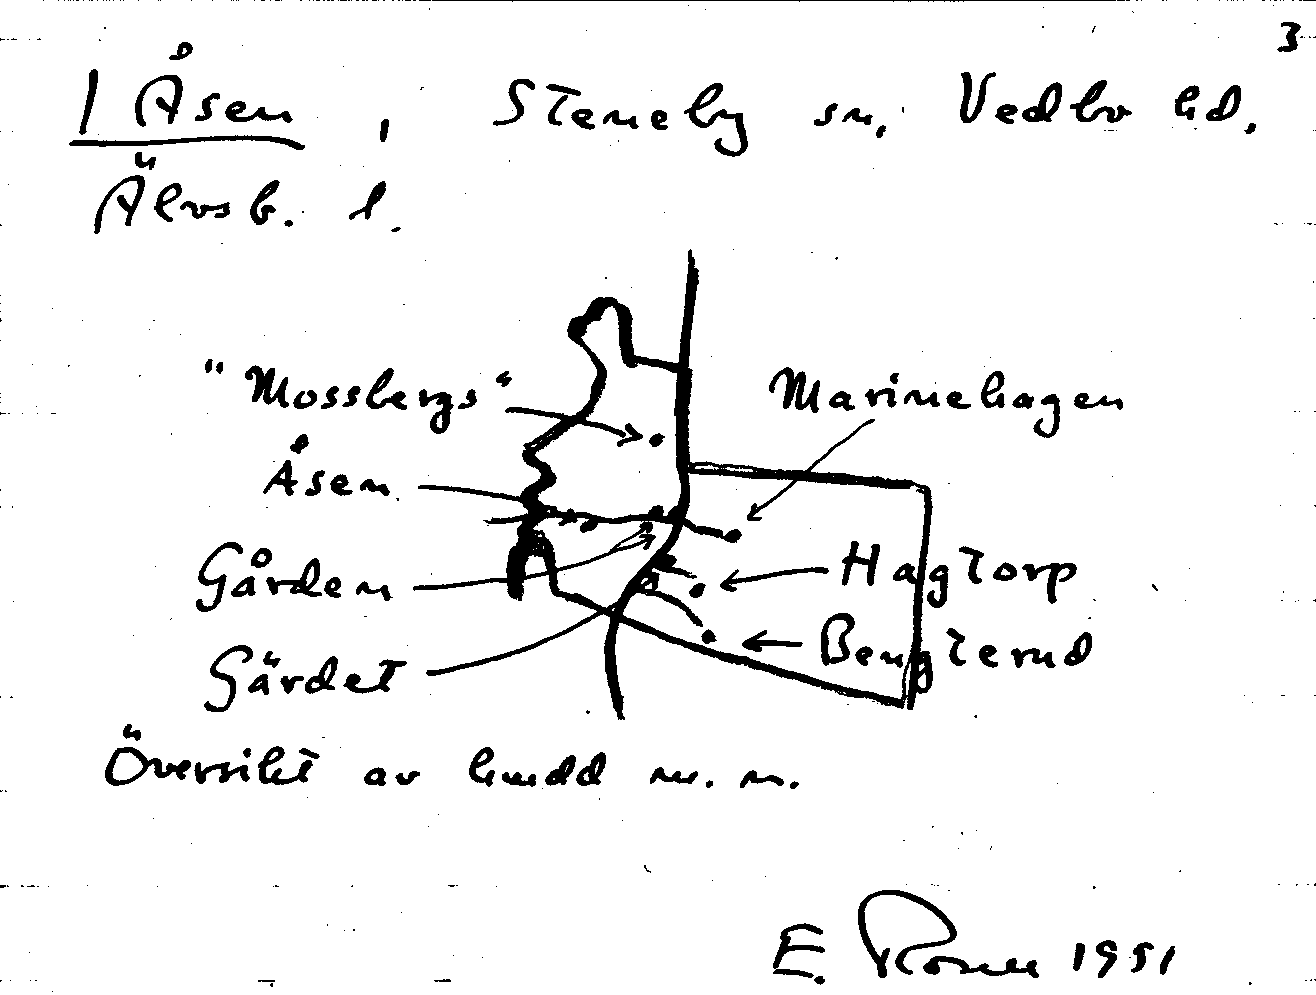 3
1 Åsen, Steneby sn, Vedbo hd,
Älvsb. l.
"Mossbergs"
Marinehagen
Åsen
Gården
Hagtorp
Gärdet
Bengterud
Översikt av hudd m. m.
E. 1951